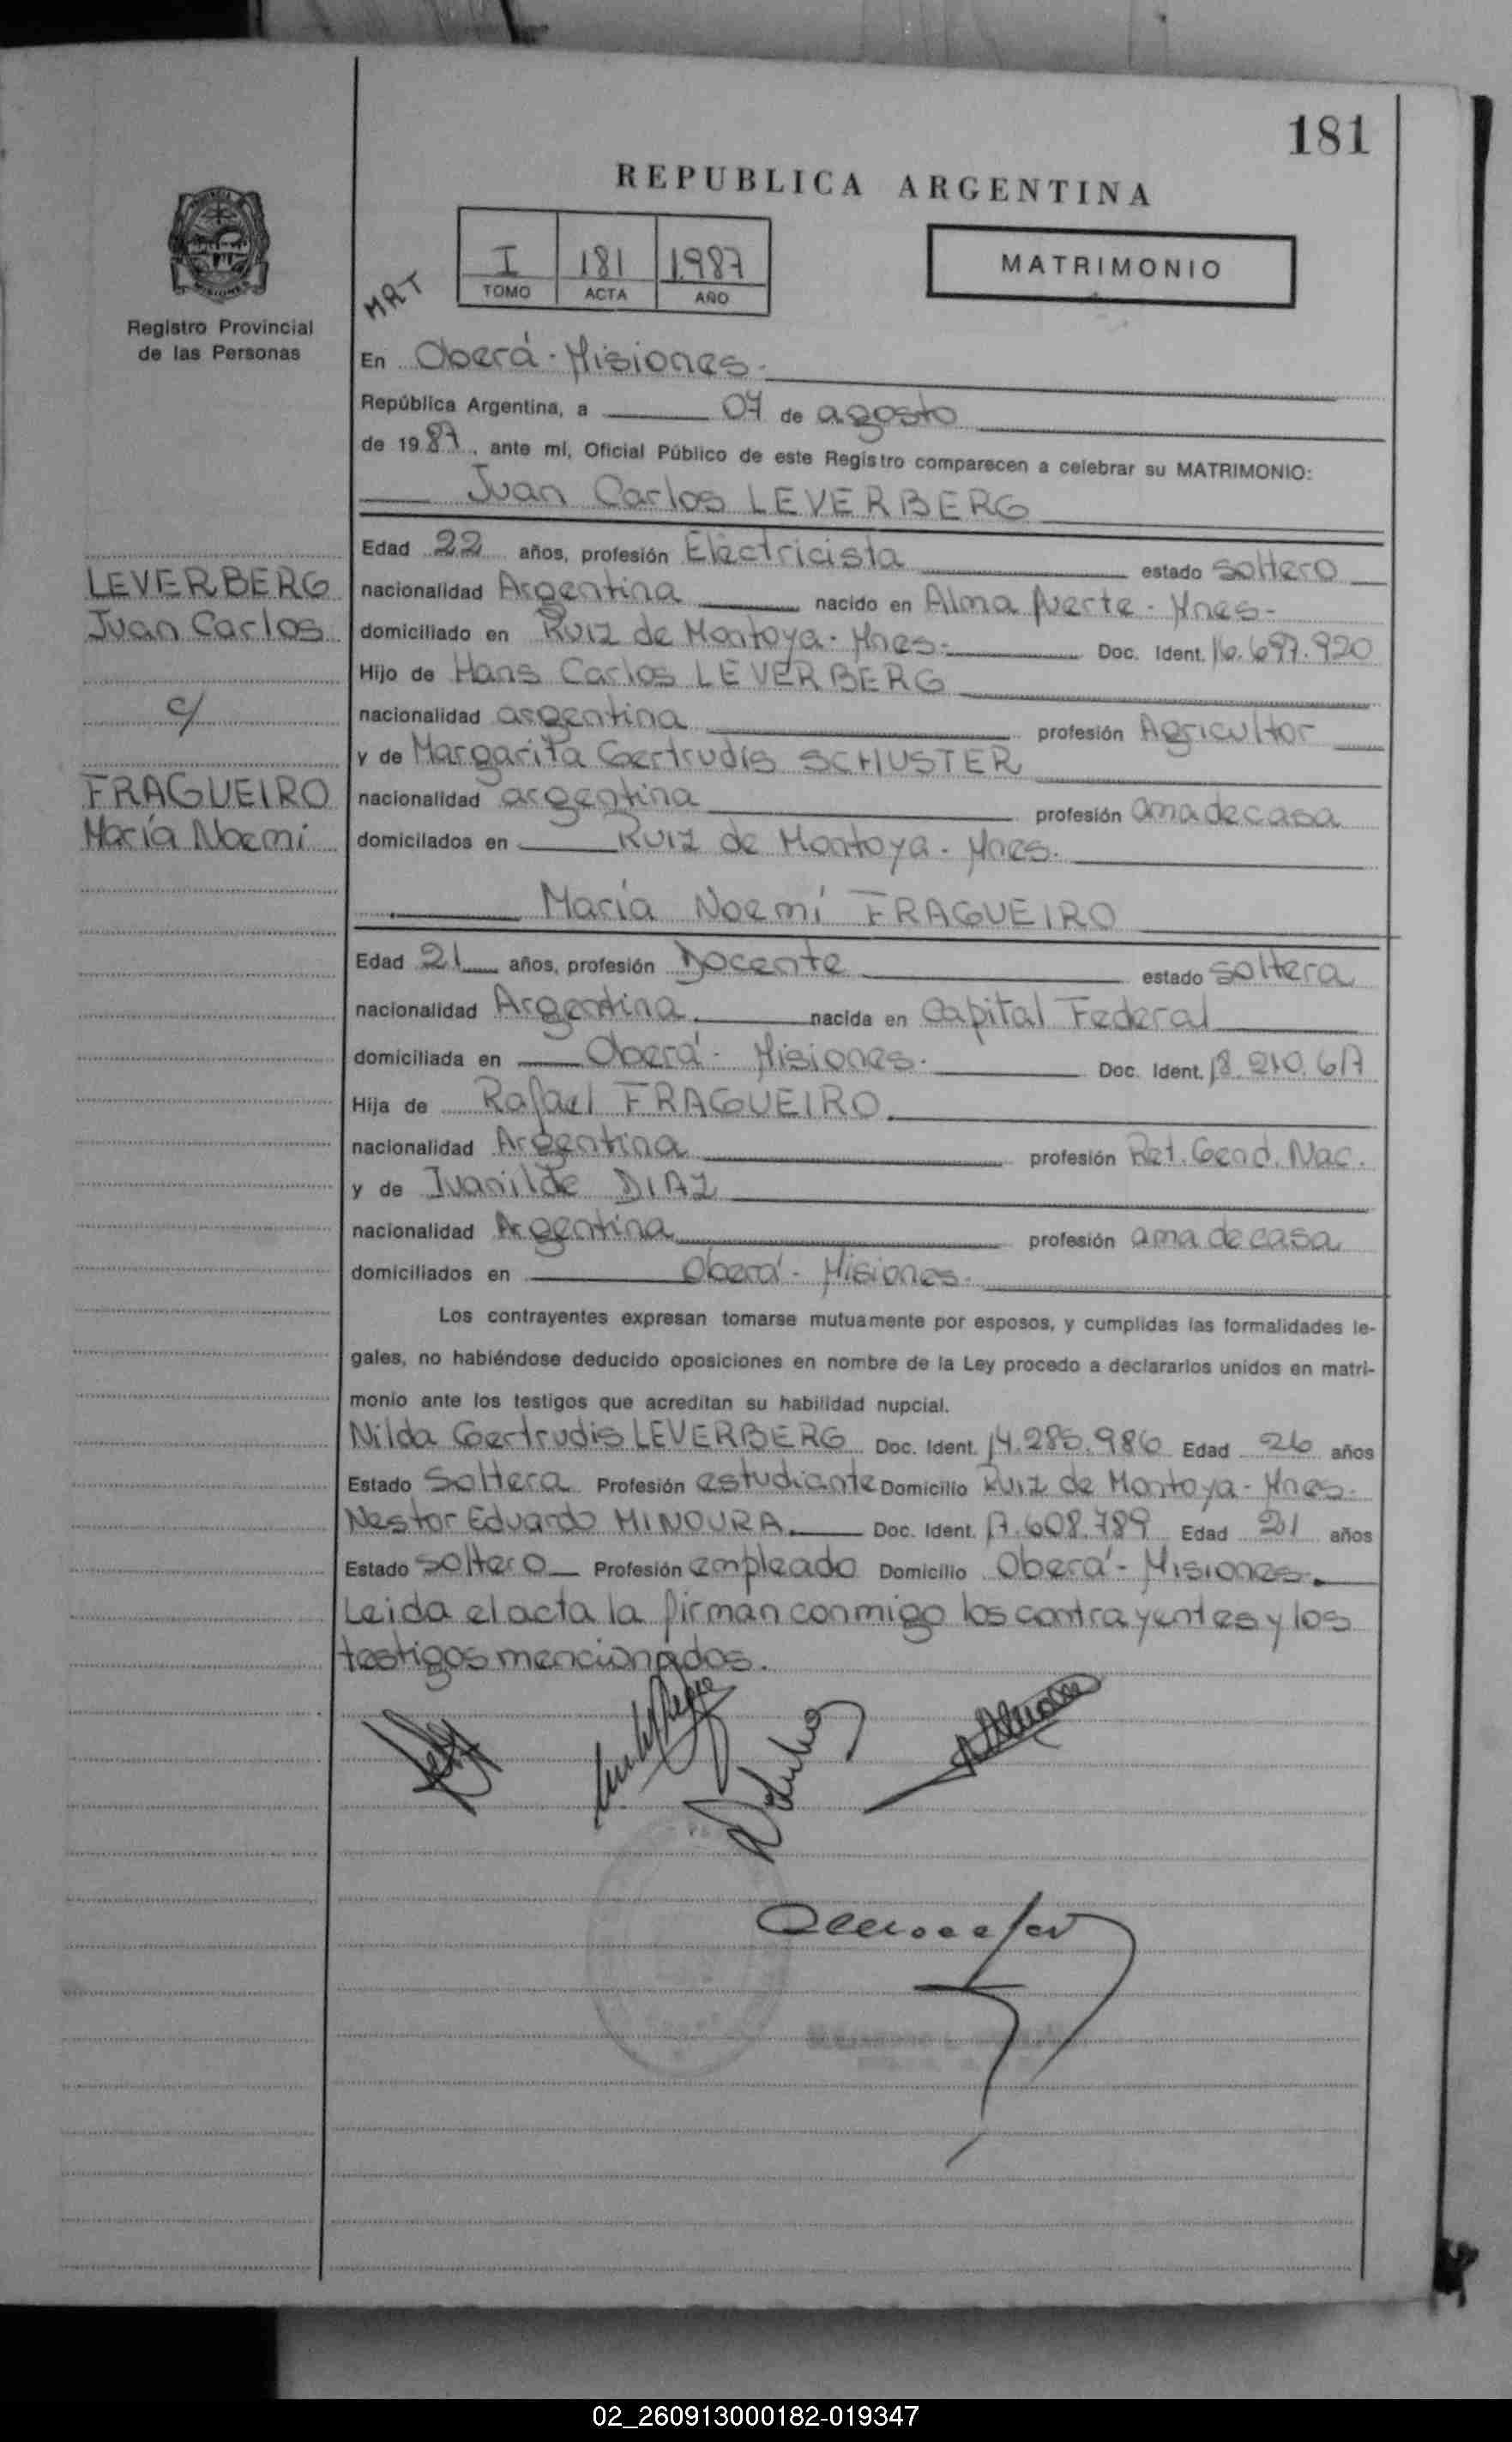 181
REPUBLICA ARGENTINA
I 181 1987
TOMO ACTA AÑO
MATRIMONIO
MRT
Registro Provincial
de las Personas
En Oberá - Misiones.
República Argentina, a 07 de agosto
de 1987, ante mí, Oficial Público de este Registro comparecen a celebrar su MATRIMONIO:
Juan Carlos LEVERBERG
Edad 22 años, profesión Electricista estado soltero
LEVERBERG
nacionalidad Argentina nacido en Alma fuerte - Mnes-
Juan Carlos
domiciliado en Ruiz de Montoya - Mnes- Doc. Ident. 16.697.920
Hijo de Hans Carlos LEVERBERG
c/
nacionalidad argentina profesión Agricultor
y de Margarita Gertrudis SCHUSTER
FRAGUEIRO
nacionalidad argentina profesión ama de casa
María Noemi
domicilados en Ruiz de Montoya - Mnes.
María Noemí FRAGUEIRO
Edad 21 años, profesión Docente estado soltera
nacionalidad Argentina nacida en Capital Federal
domiciliada en Oberá - Misiones. Doc. Ident. 18.210.617
Hija de Rafael FRAGUEIRO
nacionalidad Argentina profesión Ret. Gend. Nac.
y de Ivanilde DIAZ
nacionalidad Argentina profesión ama de casa
domiciliados en Oberá - Misiones.
Los contrayentes expresan tomarse mutuamente por esposos, y cumplidas las formalidades le-
gales, no habiéndose deducido oposiciones en nombre de la Ley procedo a declararlos unidos en matri-
monio ante los testigos que acreditan su habilidad nupcial.
Nilda Gertrudis LEVERBERG Doc. Ident. 14.285.986 Edad 26 años
Estado Soltera Profesión estudiante Domicilio Ruiz de Montoya - Mnes.
Nestor Eduardo MINOURA Doc. Ident. 17.608.789 Edad 21 años
Estado soltero Profesión empleado Domicilio Oberá - Misiones.
Leida el acta la firman conmigo los contrayentes y los
testigos mencionados.
02_260913000182-019347